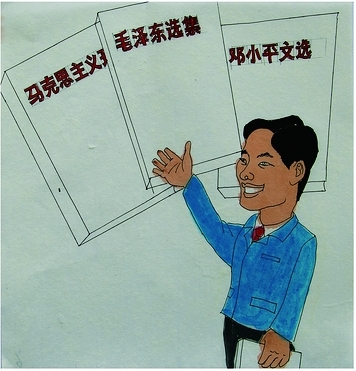 马克思主义
毛泽东选集
邓小平文选